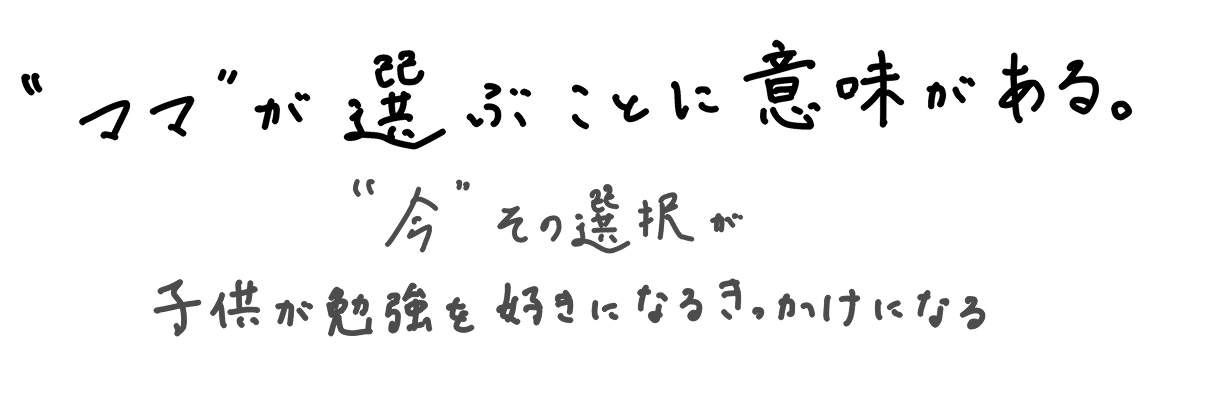 “ママ”が選ぶことに意味がある。
“今”その選択が
子供が勉強を好きになるきっかけになる